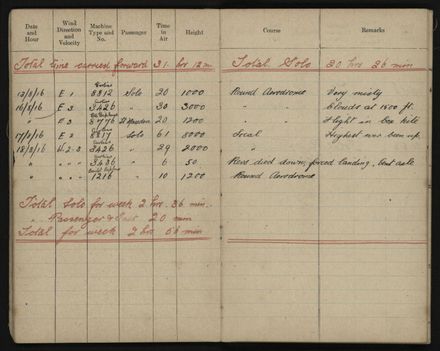 Date and Hour | Wind Direction and Velocity | Machine Type and No. | Passenger | Time in Air | Height | Course | Remarks
Total time carried forward 31 hrs 12 m | Total Solo 30 hrs 36 min
13/8/16 | E 1 | 8812 | Solo | 20 | 1000 | Round Aerodrome | Very misty
16/8/16 | E 3 | 3426 | " | 30 | 3000 | " | Clouds at 1500 ft.
" | E 3 | 8776 | | 20 | 1200 | " | Flight in
17/8/16 | E 2 | 8817 | Solo | 61 | 5000 | Local | Highest ever been up
18/8/16 | W.2-3 | 3426 | " | 29 | 2000 | "
" | " | 3426 | " | 6 | 50 | Revs died down, forced landing,
" | " | 1216 | " | 10 | 1200 | Round Aerodrome
Total Solo for week 2 hrs. 36 min.
" Passenger & 20 min
Total for week 2 hrs 56 min